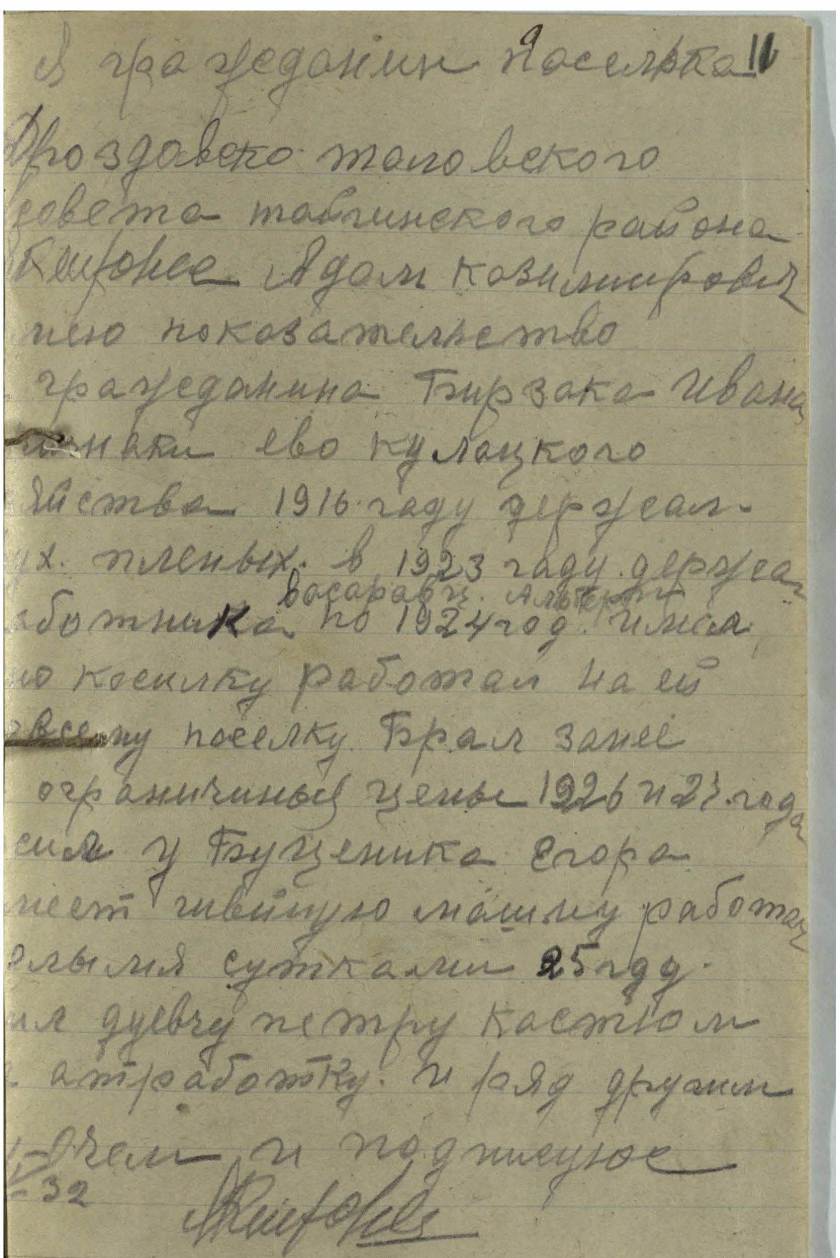 Я гражданин поселка 11
Дроздовско таловского
совета тавгинского района
Адам козимирович
мею показательство
гражданина Бирзака Ивана
знаки ево кулацкого
яйства 1916 гаду держал
ух. пленых. в 1923 гаду держа
Альберт
ботника по 1924 год. имел
но косилку работал на ей
всему поселку. Брал занее
ограничиный цены 1926 и 27. года
сил у Буценика Егора
меет швейную машину работал
сутками 25 гду.
ил дуевчу петру костюм
атработку. и ряд другим
очем и подписуюс
32